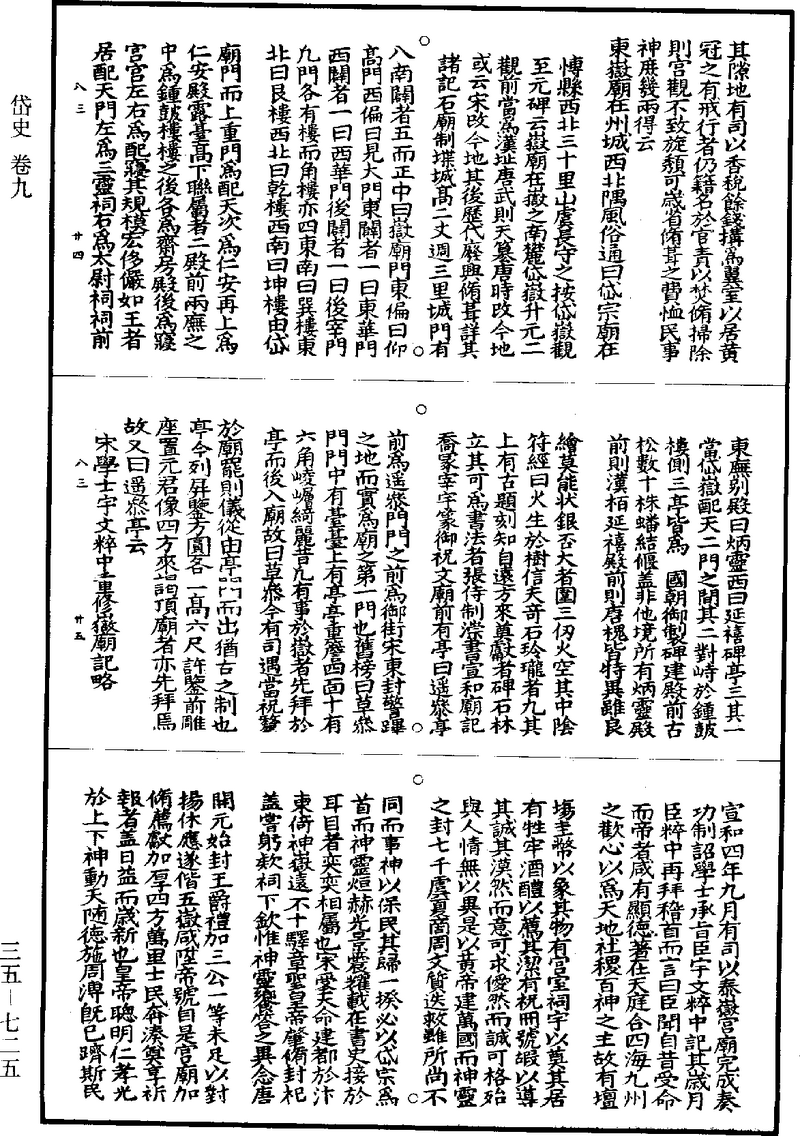 岱史 卷九
三五—七二五
其隙地有司以香稅餘錢搆為翼室以居黃
冠之有戒行者仍籍名於官責以焚脩掃除
則宮觀不致旋頹可歲省脩葺之費恤民事
神庶幾兩得云
東嶽廟在州城西北隅風俗通曰岱宗廟在
博縣西北三十里山虞長守之按岱嶽觀
至元碑云嶽廟在嶽之南麓岱嶽升元二
觀前當為漢址唐武則天纂唐時改今地
或云宋改今地其後歷代廢興脩葺詳其
諸記石廟制堞城高二丈週三里城門有
八南闢者五而正中曰嶽廟門東偏曰仰
高門西偏曰見大門東闢者一曰東華門
西闢者一曰西華門後闢者一曰後宰門
九門各有樓而角樓亦四東南曰巽樓東
北曰艮樓西北曰乾樓西南曰坤樓由岱
廟門而上重門為配天次為仁安再上為
仁安殿露臺高下聯屬者二殿前兩廡之
中為鍾鼓樓樓之後各為齋房殿後為寢
宮宮左右為配寢其規模宏侈儼如王者
居配天門左為三靈祠右為太尉祠祠前
八三
廿四
東廡別殿曰炳靈西曰延禧碑亭三其一
當岱嶽配天二門之間其二對峙於鍾鼓
樓側三亭皆為 國朝御製碑建殿前古
松數十株蟠結偃蓋非他境所有炳靈殿
前則漢栢延禧殿前則唐槐皆特異雖良
繪莫能狀銀杏大者圍三仞火空其中陰
符經曰火生於樹信夫奇石玲瓏者九其
上有古題刻知自遠方來奠獻者碑石林
立其可為書法者張侍制漴書宣和廟記
喬冢宰宇篆御祝文廟前有亭曰遥參亭
前為遥參門門之前為御街宋東封警蹕
之地而實為廟之第一門也舊榜曰草參
門門中有臺臺上有亭亭重簷四面十有
六角崚嶒綺麗昔凡有事於嶽者先拜於
亭而後入廟故曰草參今有司遇當祝釐
於廟罷則儀從由亭門而出猶古之制也
亭今列屏鑒方圓各一高六尺許鑒前雕
座置元君像四方來詣頂廟者亦先拜焉
故又曰遥參亭云
宋學士宇文粹中重修嶽廟記略
八三
廿五
宣和四年九月有司以泰嶽宮廟完成奏
功制詔學士承旨臣宇文粹中記其歲月
臣粹中再拜稽首而言曰臣聞自昔受命
而帝者咸有顯德著在天庭合四海九州
之歡心以為天地社稷百神之主故有壇
塲圭幣以象其物有宮室祠宇以奠其居
有牲牢酒醴以薦其潔有祝冊號嘏以導
其誠其漠然而意可求僾然而誠可格殆
與人情無以異是以黃帝建萬國而神靈
之封七千虞夏商周文質迭救雖所尚不
同而事神以保民其歸一揆必以岱宗為
首而神靈烜赫光景震耀載在書史接於
耳目者奕奕相屬也宋受天命建都於汴
東倚神嶽遠不十驛章聖皇帝肇脩封祀
蓋嘗躬欵祠下欽惟神靈饗答之異念唐
開元始封王爵禮加三公一等未足以對
揚休應遂偕五嶽咸陞帝號自是宮廟加
脩薦獻加厚四方萬里士民奔湊奠享祈
報者蓋日益而歲新也皇帝聰明仁孝光
於上下神動天随德施周溥旣已躋斯民